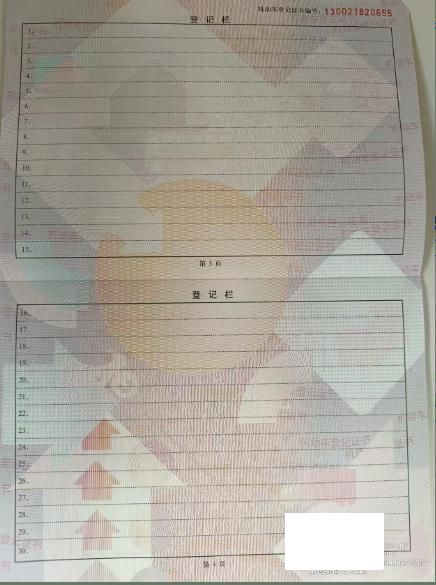 机动车登记证书编号：130021820655
登 记 栏
1.
2.
3.
4.
5.
6.
7.
8.
9.
10.
11.
12.
13.
14.
15.
第 3 页
登 记 栏
16.
17.
18.
19.
20.
21.
22.
23.
24.
25.
26.
27.
28.
29.
30.
第 4 页